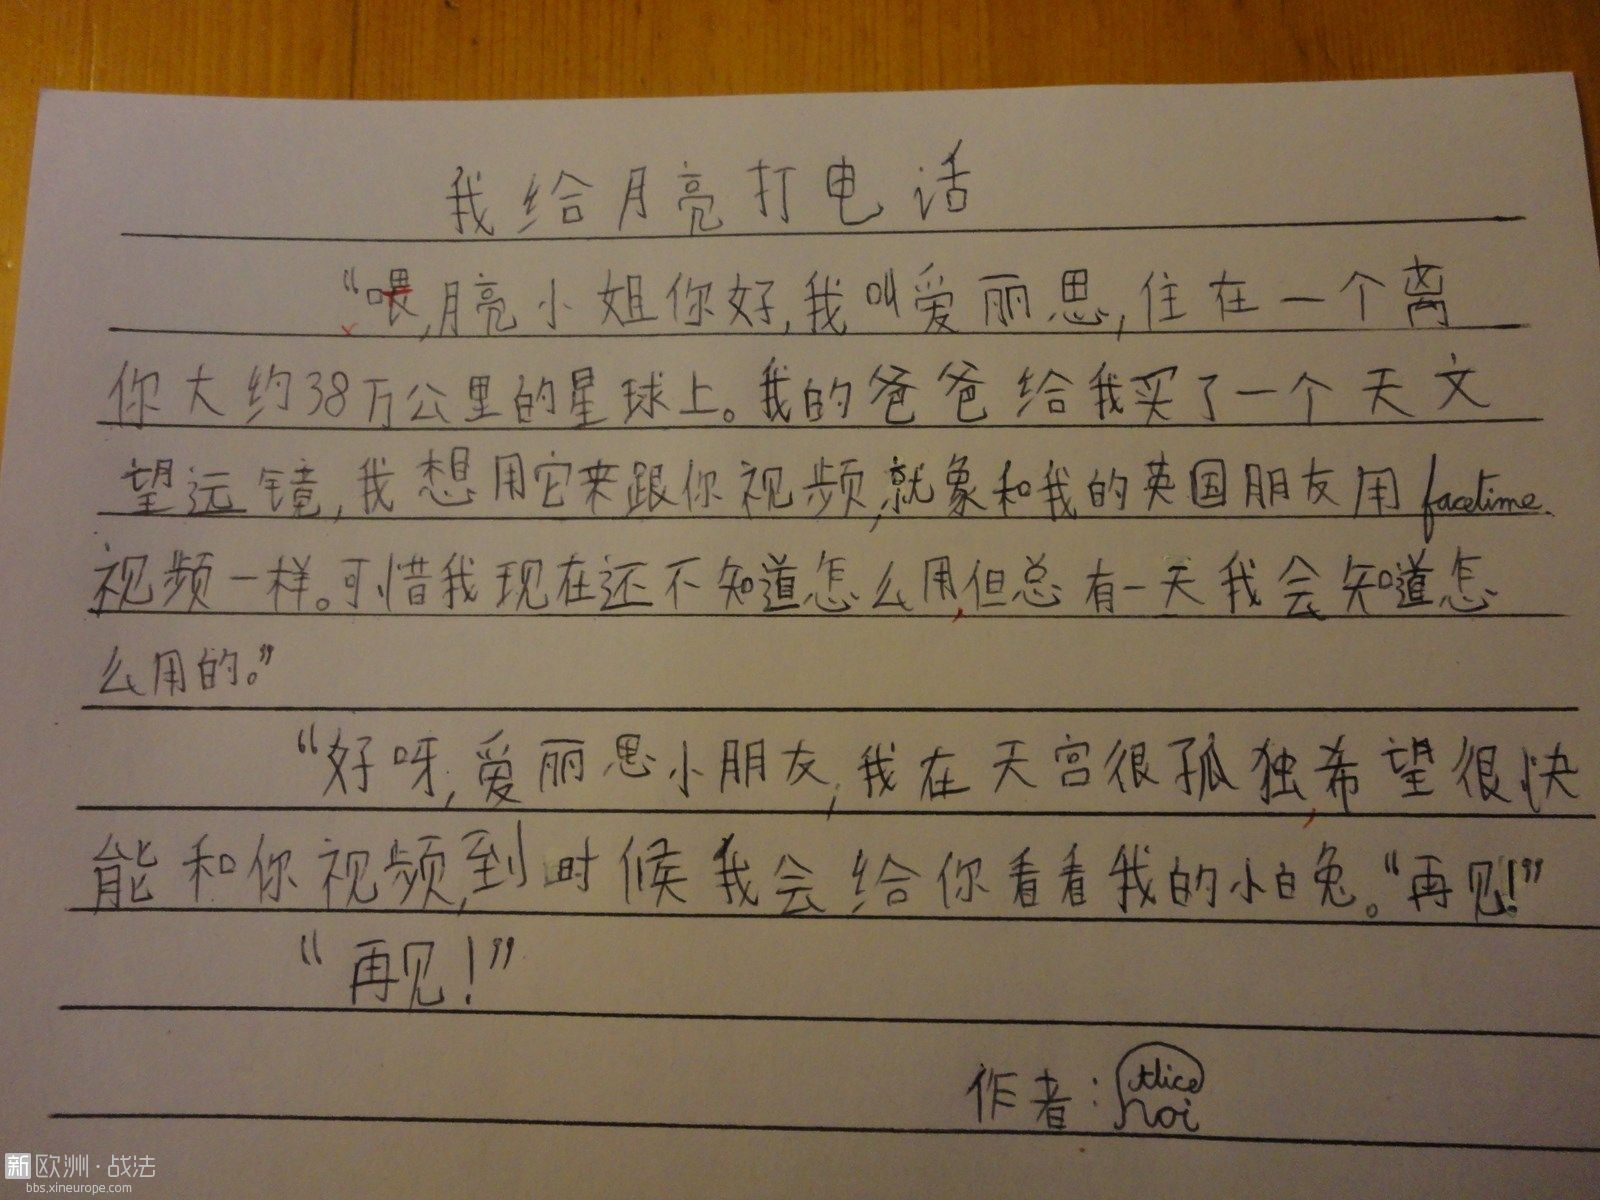 我给月亮打电话
“喂,月亮小姐你好,我叫爱丽思,住在一个离
你大约38万公里的星球上。我的爸爸给我买了一个天文
望远镜,我想用它来跟你视频,就象和我的英国朋友用facetime
视频一样。可惜我现在还不知道怎么用,但总有一天我会知道怎
么用的。”
“好呀,爱丽思小朋友,我在天宫很孤独,希望很快
能和你视频,到时候我会给你看看我的小白兔。“再见!”
“再见!”
作者:Alice
新欧洲·战法
bbs.xineurope.com